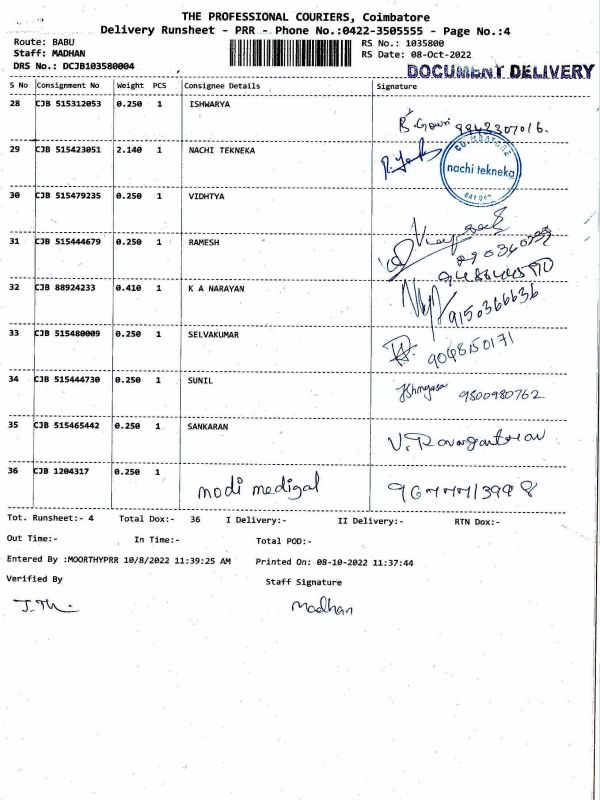 THE PROFESSIONAL COURIERS, Coimbatore
Delivery Runsheet - PRR - Phone No.:0422-3505555 - Page No.:4
Route: BABU RS No.: 1035800
Staff: MADHAN RS Date: 08-Oct-2022
DRS No.: DCJB103580004 DOCUMENT DELIVERY
S No Consignment No Weight PCS Consignee Details Signature
28 CJB 515312053 0.250 1 ISHWARYA
B. Gowri 9942307016.
29 CJB 515423051 2.140 1 NACHI TEKNEKA
COIMBATORE
nachi tekneka
30 CJB 515479235 0.250 1 VIDHTYA
31 CJB 515444679 0.250 1 RAMESH
32 CJB 88924233 0.410 1 K A NARAYAN
9150366636
33 CJB 515480009 0.250 1 SELVAKUMAR
9048150171
34 CJB 515444730 0.250 1 SUNIL
9500980762
35 CJB 515465442 0.250 1 SANKARAN
36 CJB 1204317 0.250 1
modi medigal 9677713998
Tot. Runsheet:- 4 Total Dox:- 36 I Delivery:- II Delivery:- RTN Dox:-
Out Time:- In Time:- Total POD:-
Entered By :MOORTHYPRR 10/8/2022 11:39:25 AM Printed On: 08-10-2022 11:37:44
Verified By Staff Signature
Madhan